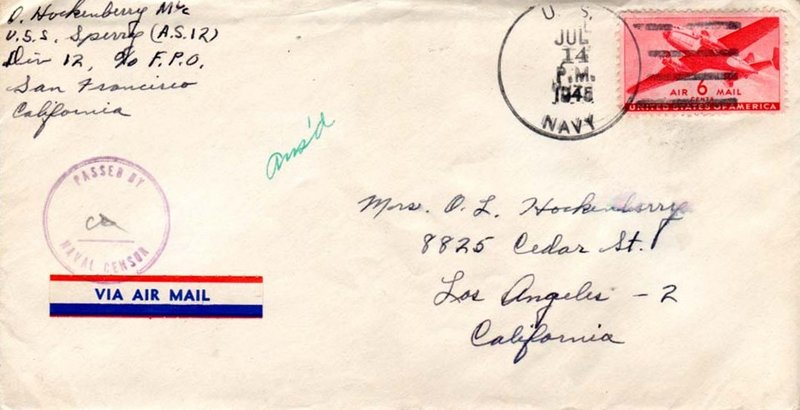 O. Hockenberry M1/c
U.S.S. Sperry (A.S.12)
Div 12, c/o F.P.O.
San Francisco
California
U. S.
JUL
14
P.M.
1945
NAVY
AIR 6 MAIL
CENTS
UNITED STATES OF AMERICA
ans'd
PASSED BY
NAVAL CENSOR
VIA AIR MAIL
Mrs. O. L. Hockenberry
8825 Cedar St.
Los Angeles - 2
California